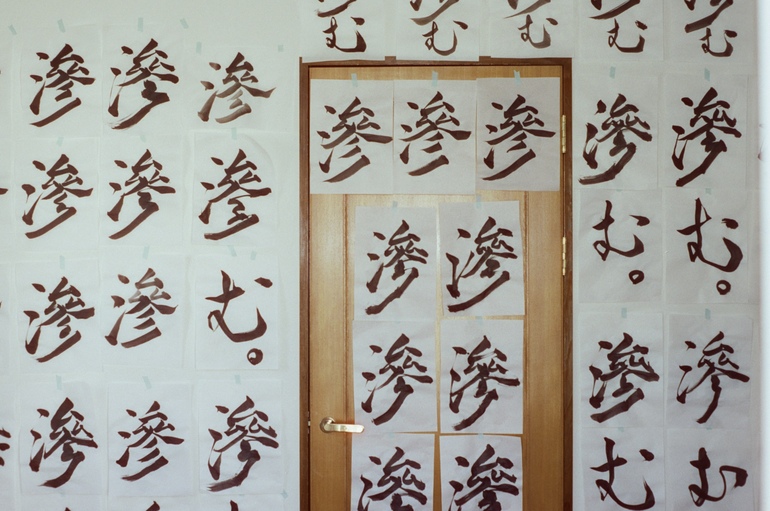 む む む む む
滲 滲 滲 滲 滲 滲 滲 滲
滲 滲 滲 滲 滲 む。 む。
滲 滲 む。 滲 滲 滲 滲
滲 滲 滲 滲 滲 む む